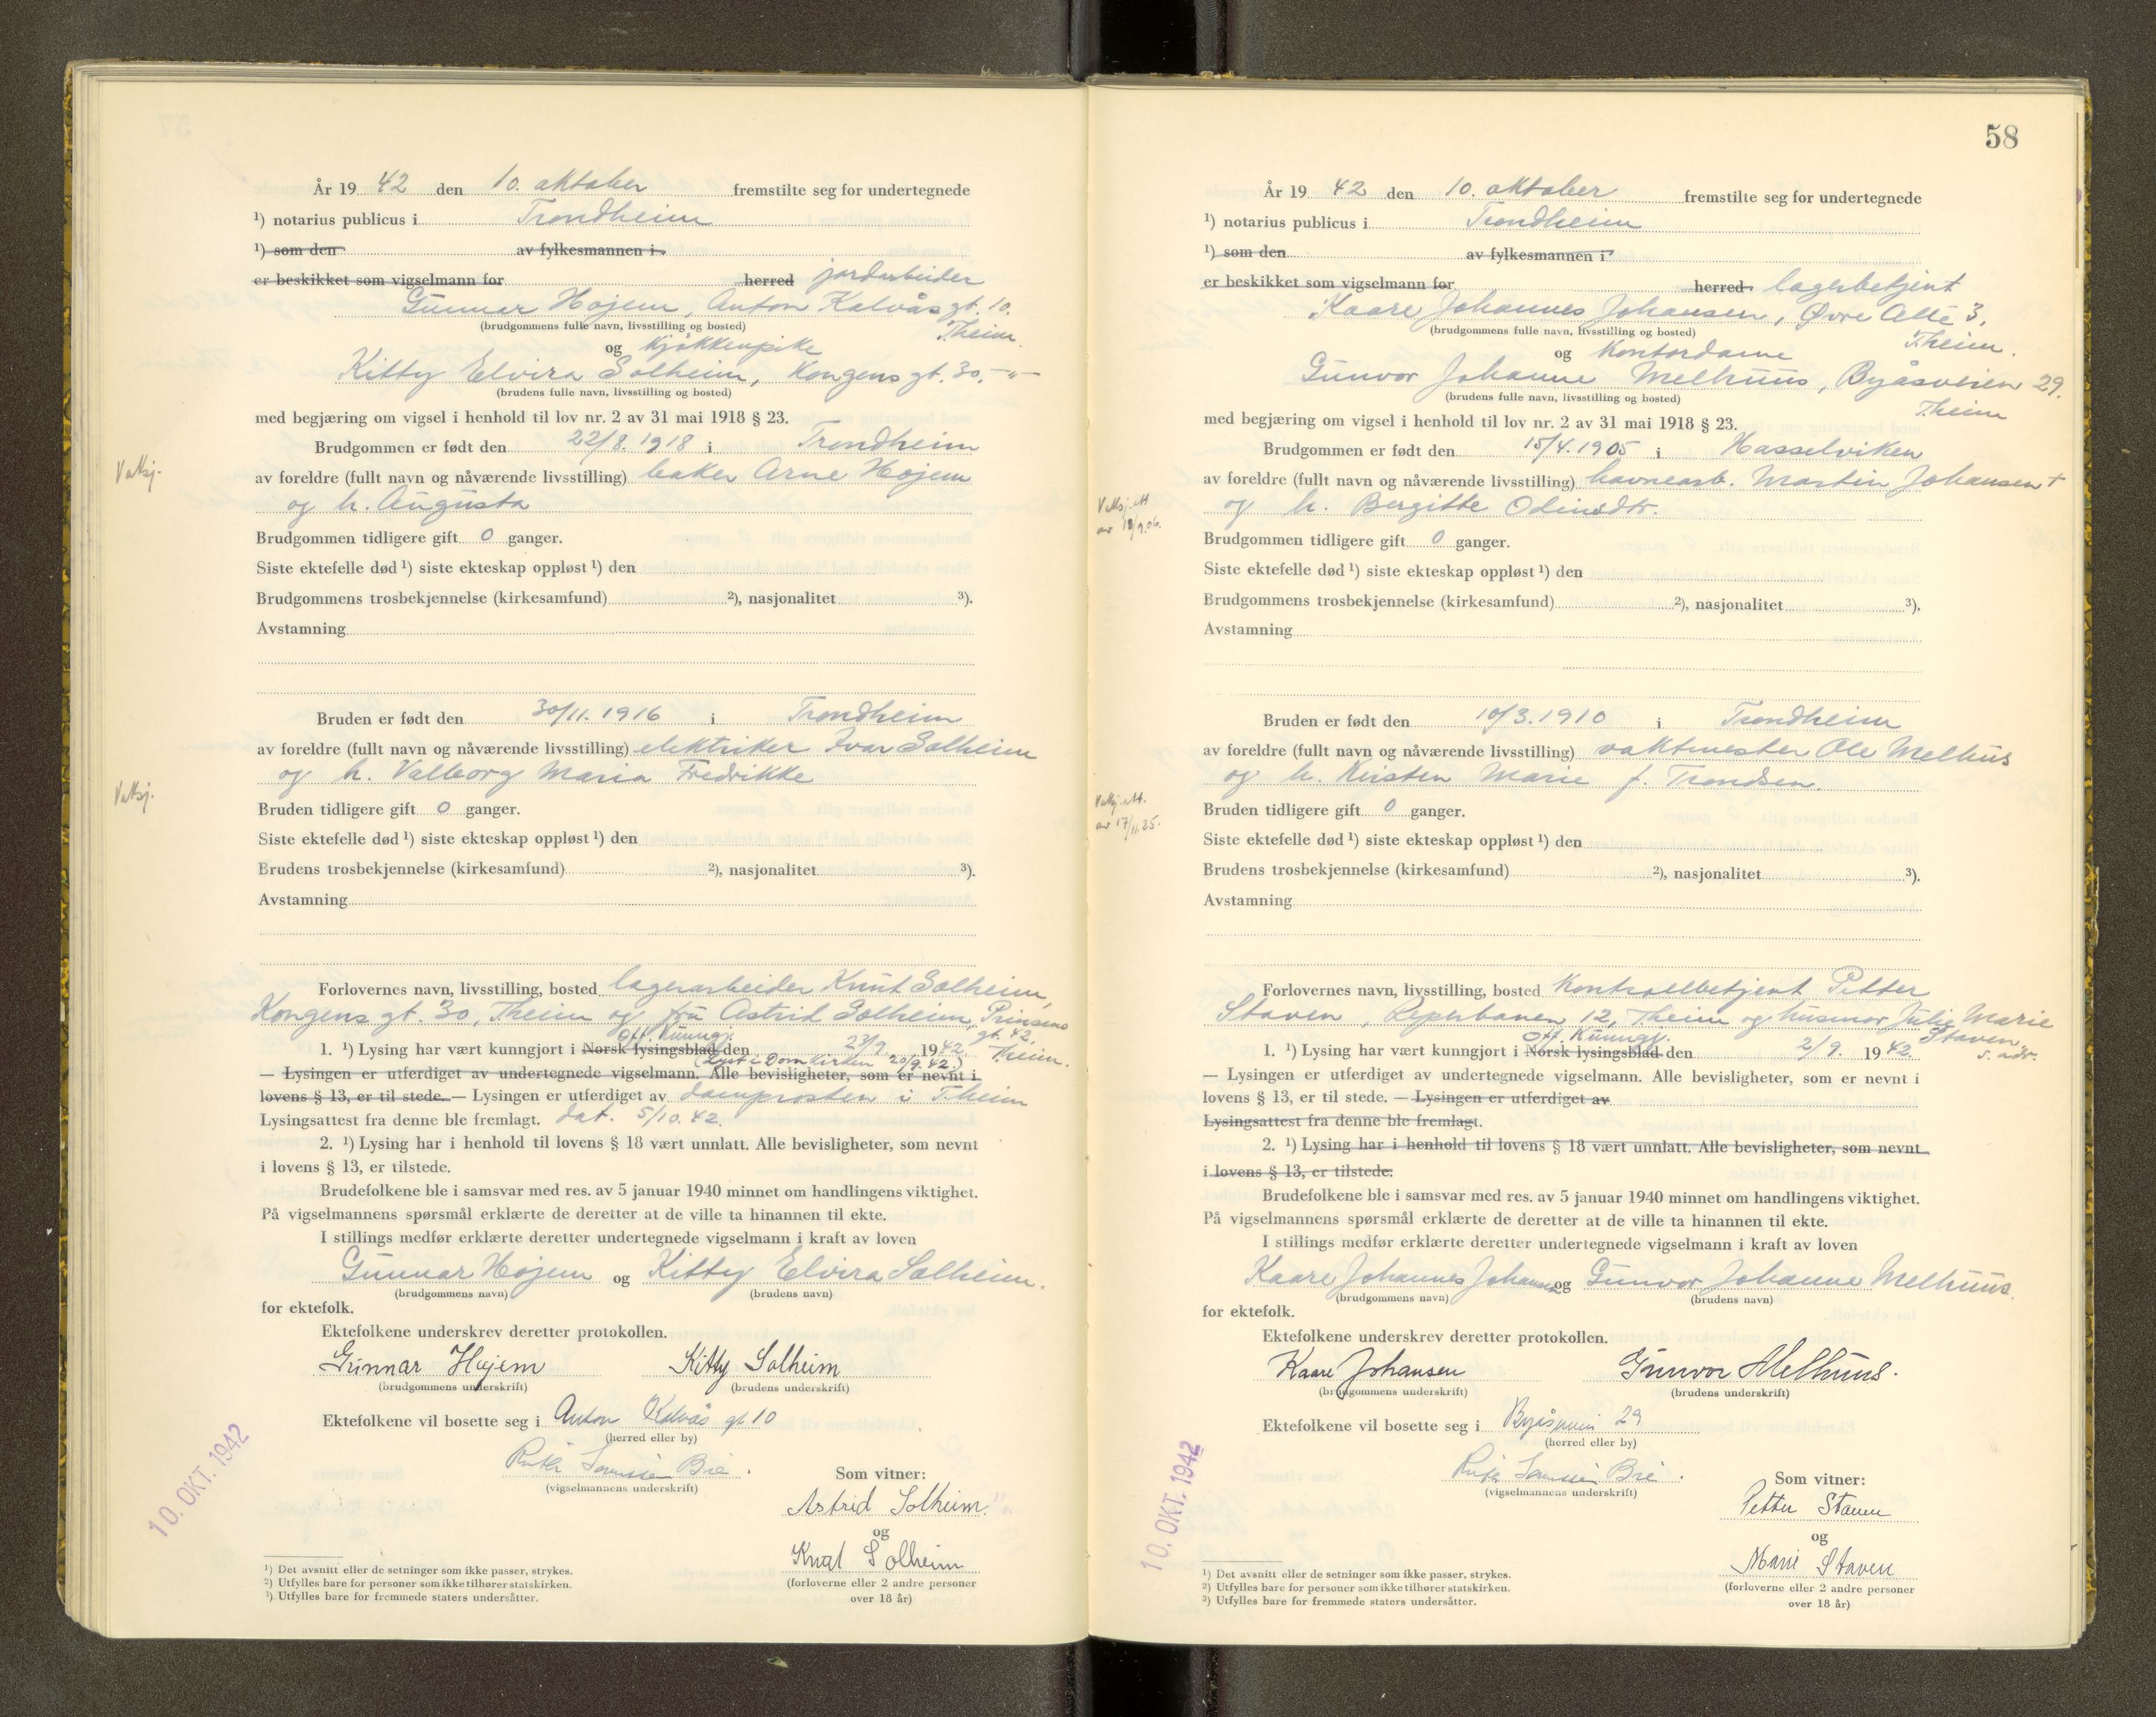 År 19 42 den 10. oktober fremstilte seg for undertegnede
¹) notarius publicus i Trondheim
¹) som den av fylkesmannen i
er beskikket som vigselmann for herred jordarbeider
Gunnar Hojem, Anton Kalvås gt. 10.
(brudgommens fulle navn, livsstilling og bosted) Theim
og kjøkkenpike
Kitty Elvira Solheim, Kongens gt. 30. -"-
(brudens fulle navn, livsstilling og bosted)
med begjæring om vigsel i henhold til lov nr. 2 av 31 mai 1918 § 23.
Brudgommen er født den 22/8. 1918 i Trondheim
Vaksj.
av foreldre (fullt navn og nåværende livsstilling) baker Arne Hojem
og h. Augusta
Brudgommen tidligere gift 0 ganger.
Siste ektefelle død ¹) siste ekteskap oppløst ¹) den
Brudgommens trosbekjennelse (kirkesamfund) ²), nasjonalitet ³).
Avstamning
Bruden er født den 30/11. 1916 i Trondheim
av foreldre (fullt navn og nåværende livsstilling) elektriker Ivar Solheim
og h. Valborg Maria Fredrikke
Vaksj.
Bruden tidligere gift 0 ganger.
Siste ektefelle død ¹) siste ekteskap oppløst ¹) den
Brudens trosbekjennelse (kirkesamfund) ²), nasjonalitet ³).
Avstamning
Forlovernes navn, livsstilling, bosted lagerarbeider Knut Solheim,
Kongens gt. 30, Theim og fru Astrid Solheim, Prinsens
gt. 42,
Off. Kunngj.
1. ¹) Lysing har vært kunngjort i Norsk lysingsblad den 23/9. 1942. Theim.
(Lyst i Domkirken 20/9. 42.)
— Lysingen er utferdiget av undertegnede vigselmann. Alle bevisligheter, som er nevnt i
lovens § 13, er til stede. — Lysingen er utferdiget av domprosten i Theim
Lysingsattest fra denne ble fremlagt. dat. 5/10. 42.
2. ¹) Lysing har i henhold til lovens § 18 vært unnlatt. Alle bevisligheter, som nevnt
i lovens § 13, er tilstede.
Brudefolkene ble i samsvar med res. av 5 januar 1940 minnet om handlingens viktighet.
På vigselmannens spørsmål erklærte de deretter at de ville ta hinannen til ekte.
I stillings medfør erklærte deretter undertegnede vigselmann i kraft av loven
Gunnar Hojem og Kitty Elvira Solheim.
(brudgommens navn) (brudens navn)
for ektefolk.
Ektefolkene underskrev deretter protokollen.
Gunnar Hojem Kitty Solheim
(brudgommens underskrift) (brudens underskrift)
Ektefolkene vil bosette seg i Anton Kalvås gt 10
(herred eller by)
10. OKT. 1942
Ruth
(vigselmannens underskrift)
Som vitner:
Astrid Solheim.
og
Knut Solheim
(forloverne eller 2 andre personer
over 18 år)
¹) Det avsnitt eller de setninger som ikke passer, strykes.
²) Utfylles bare for personer som ikke tilhører statskirken.
³) Utfylles bare for fremmede staters undersåtter.
58
År 19 42 den 10. oktober fremstilte seg for undertegnede
¹) notarius publicus i Trondheim
¹) som den av fylkesmannen i
er beskikket som vigselmann for herred lagerbetjent
Kaare Johannes Johansen, Øvre Allé 3,
(brudgommens fulle navn, livsstilling og bosted) Theim.
og Kontordame
Gunvor Johanne Melhuus, Byåsveien 29.
(brudens fulle navn, livsstilling og bosted) Theim
med begjæring om vigsel i henhold til lov nr. 2 av 31 mai 1918 § 23.
Brudgommen er født den 15/4. 1905 i Hasselviken
av foreldre (fullt navn og nåværende livsstilling) havnearb. Martin Johansen +
og h. Bergitte Odinsdtr.
Vaksj. att
av 18/9.06.
Brudgommen tidligere gift 0 ganger.
Siste ektefelle død ¹) siste ekteskap oppløst ¹) den
Brudgommens trosbekjennelse (kirkesamfund) ²), nasjonalitet ³).
Avstamning
Bruden er født den 10/3. 1910 i Trondheim
av foreldre (fullt navn og nåværende livsstilling) vaktmester Ole Melhus
og h. Kirsten Marie f. Trondsen.
Vaksj. att.
av 17/11.25.
Bruden tidligere gift 0 ganger.
Siste ektefelle død ¹) siste ekteskap oppløst ¹) den
Brudens trosbekjennelse (kirkesamfund) ²), nasjonalitet ³).
Avstamning
Forlovernes navn, livsstilling, bosted Kontrollbetjent Petter
Staven, Reperbanen 12, Theim og husmor Julie Marie
Staven,
Off. Kunngj.
1. ¹) Lysing har vært kunngjort i Norsk lysingsblad den 2/9. 1942. s. adr.
— Lysingen er utferdiget av undertegnede vigselmann. Alle bevisligheter, som er nevnt i
lovens § 13, er til stede. — Lysingen er utferdiget av
Lysingsattest fra denne ble fremlagt.
2. ¹) Lysing har i henhold til lovens § 18 vært unnlatt. Alle bevisligheter, som nevnt
i lovens § 13, er tilstede.
Brudefolkene ble i samsvar med res. av 5 januar 1940 minnet om handlingens viktighet.
På vigselmannens spørsmål erklærte de deretter at de ville ta hinannen til ekte.
I stillings medfør erklærte deretter undertegnede vigselmann i kraft av loven
Kaare Johannes Johansen og Gunvor Johanne Melhuus.
(brudgommens navn) (brudens navn)
for ektefolk.
Ektefolkene underskrev deretter protokollen.
Kaare Johansen Gunvor Melhuus.
(brudgommens underskrift) (brudens underskrift)
Ektefolkene vil bosette seg i Byåsveien 29
(herred eller by)
10. OKT. 1942
Ruth
(vigselmannens underskrift)
Som vitner:
Petter Staven
og
Marie Staven
(forloverne eller 2 andre personer
over 18 år)
¹) Det avsnitt eller de setninger som ikke passer, strykes.
²) Utfylles bare for personer som ikke tilhører statskirken.
³) Utfylles bare for fremmede staters undersåtter.